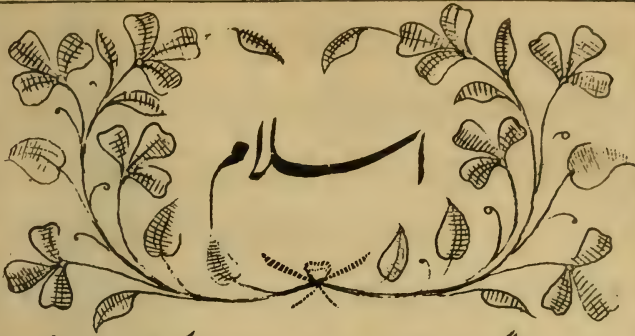 اسلام